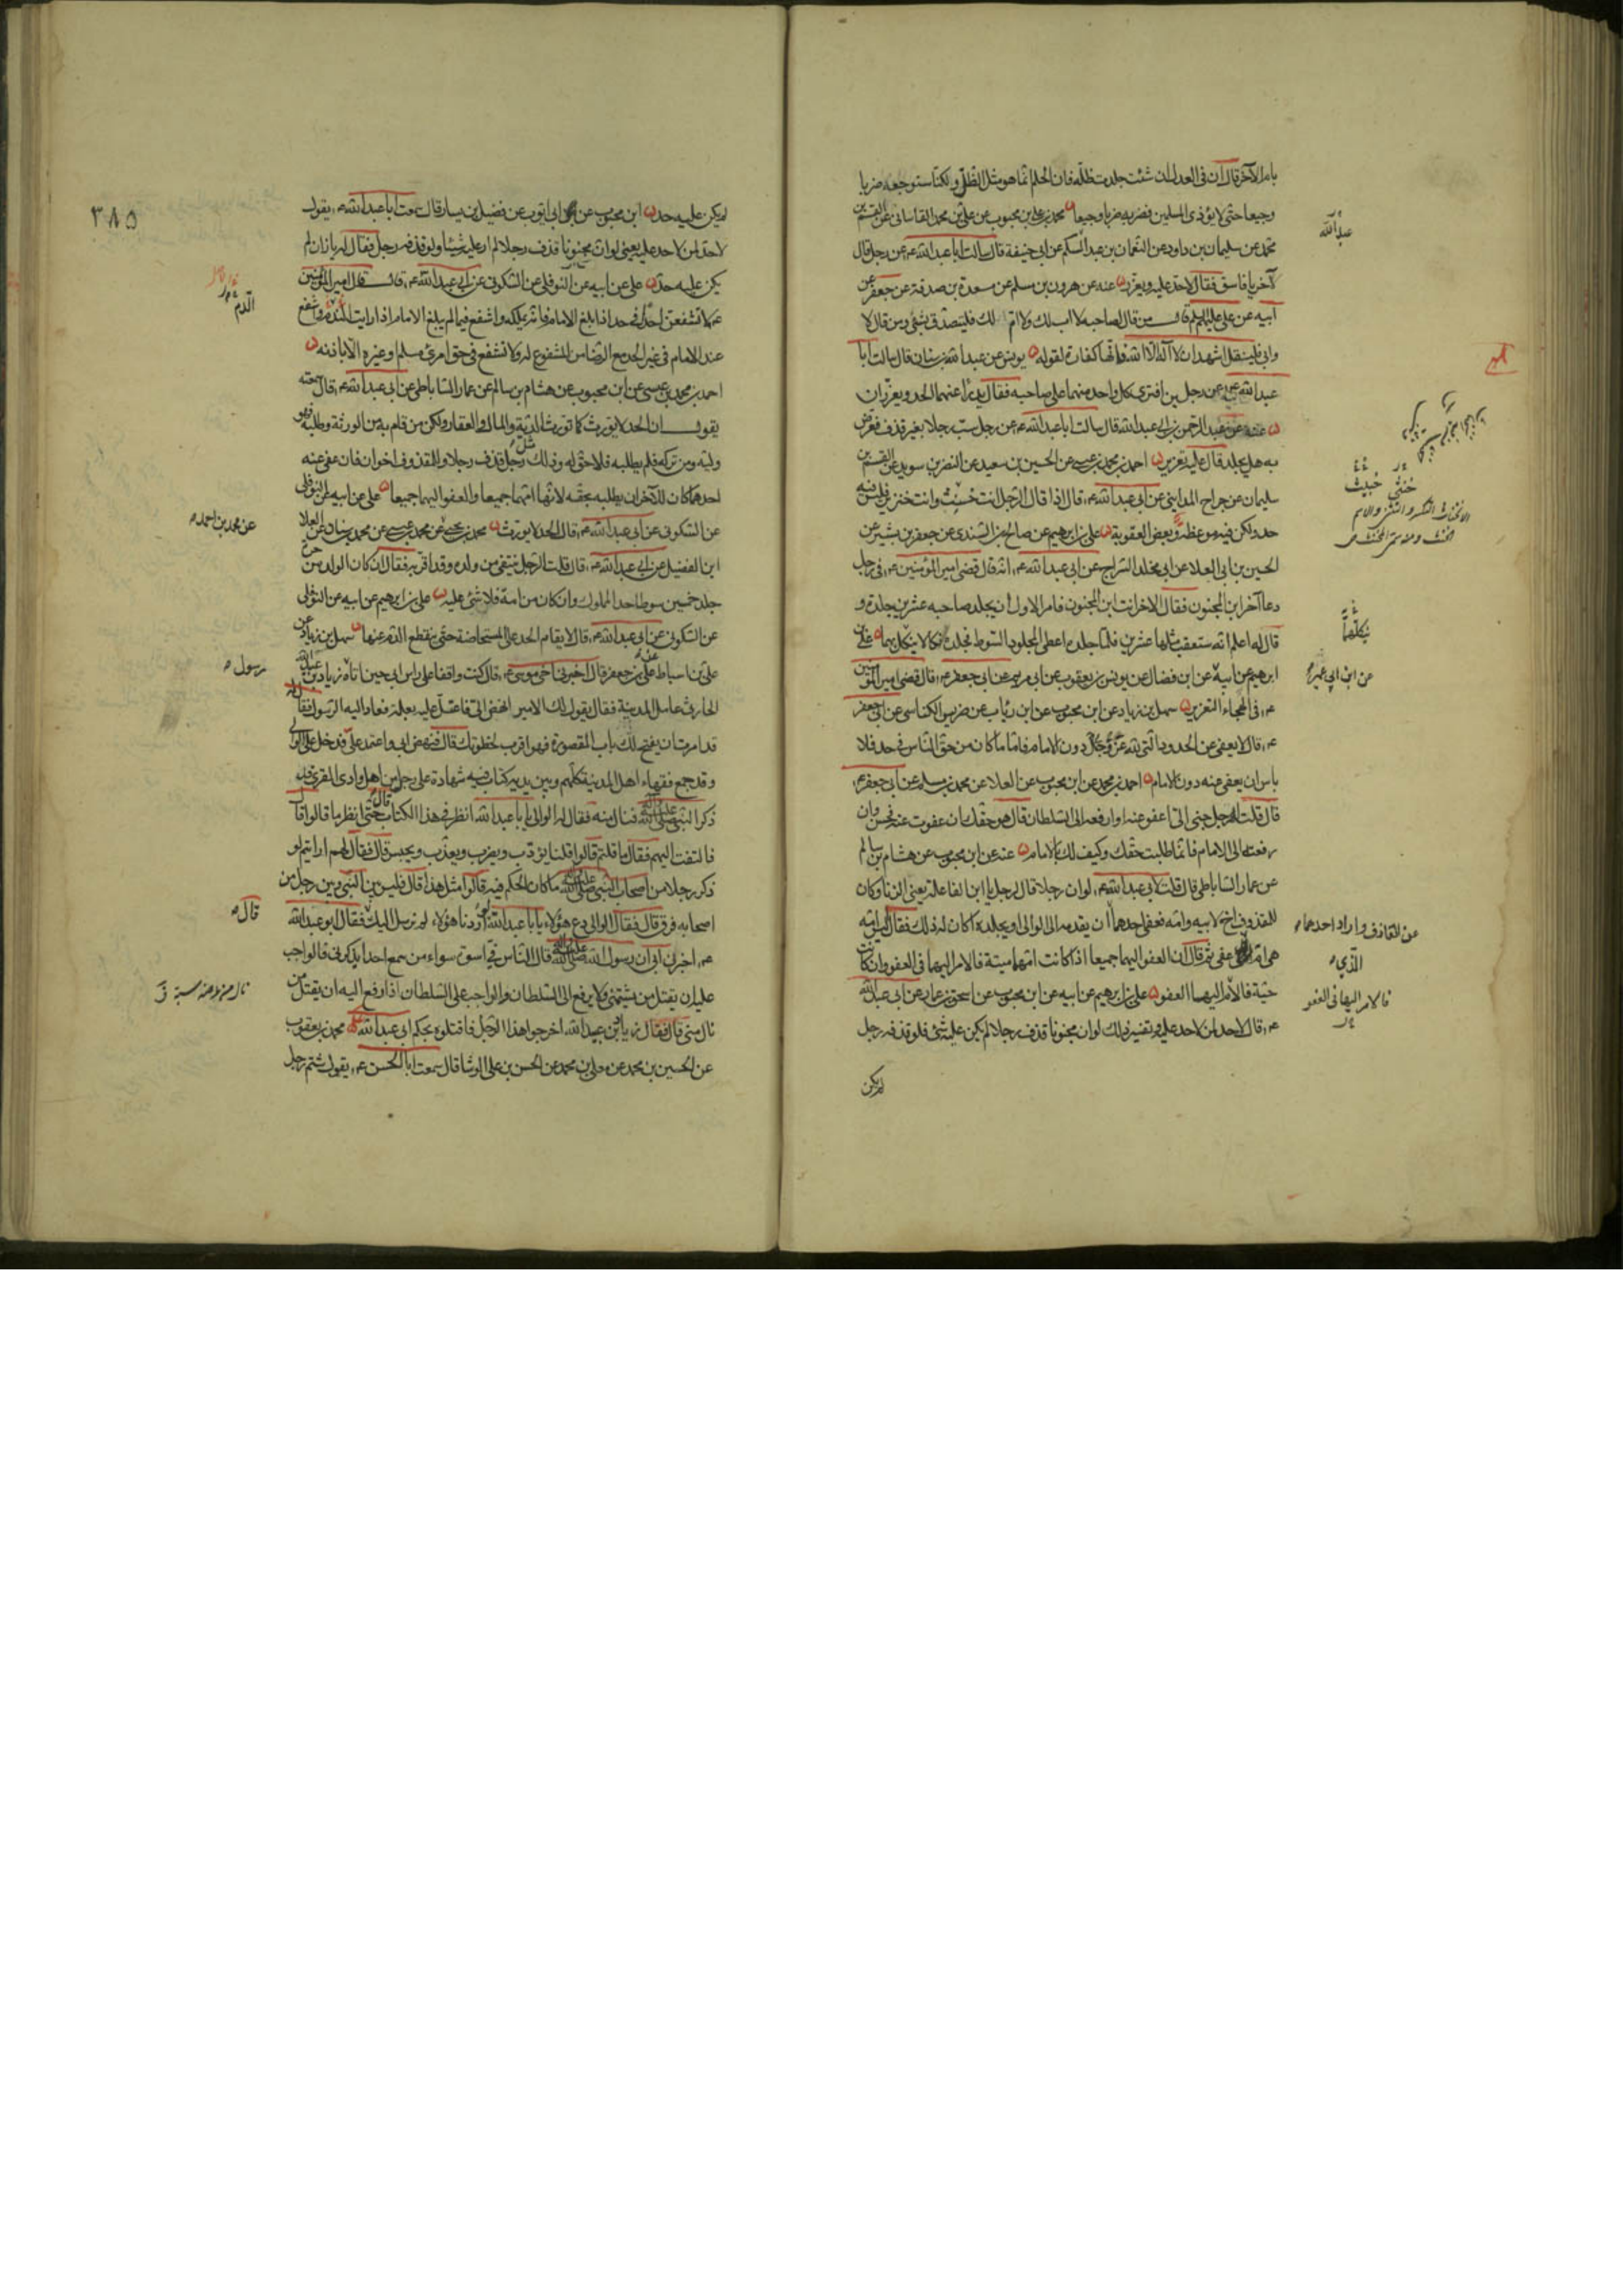 بام الآخر قال ان في العدل ان شئت جلدت ظله فان الحلم انما هو مثل الظل ولكنا سنوجعه ضربا
وجيعا حتى لا يؤذى المسلمين فضربه ضربا وجيعا محمد بن علي بن محبوب عن علي بن محمد القاساني عن القسم بن
محمد عن سليمان بن داود عن النعمان بن عبد السلم عن ابي حنيفة قال سالت ابا عبد الله ع عن رجل قال
لآخر يا فاسق فقال لا حد عليه ويعزر عنه عن هرون بن مسلم عن مسعدة بن صدقة عن جعفر عن
ابيه عن علي عليهم السلم قال من قال لصاحبه لا اب لك ولا ام لك فليتصدق بشئ ومن قال لا
وابي فليقل اشهد ان لا اله الا الله فانها كفارة لقوله يونس عن عبد الله بن سنان قال سالت ابا
عبد الله ع عن رجلين افترى كل واحد منهما على صاحبه فقال يدرأ عنهما الحد ويعزران
عنه عن عبد الرحمن بن ابي عبد الله قال سالت ابا عبد الله ع عن رجل سب رجلا بغير قذف فعرض
به هل يجلد قال عليه تعزير احمد بن محمد بن عيسى عن الحسين بن سعيد عن النضر بن سويد عن القسم بن
سليمان عن جراح المدايني عن ابي عبد الله ع قال اذا قال الرجل انت خبيث وانت خنزير فليس فيه
حد ولكن فيه موعظة وبعض العقوبة علي بن ابرهيم عن صالح بن السندي عن جعفر بن بشير عن
الحسين بن ابي العلا عن ابي مخلد السراج عن ابي عبد الله ع انه قال قضى امير المؤمنين ع في رجل
دعا آخر ابن المجنون فقال الاخر انت ابن المجنون فامر الاول ان يجلد صاحبه عشرين جلدة و
قال له اعلم انه ستعقب مثلها عشرين فلما جلده اعطى المجلود السوط فجلده نكالا ينكل بهما علي بن
ابرهيم عن ابيه عن ابن فضال عن يونس بن يعقوب عن ابي مريم عن ابي جعفر ع قال قضى امير المؤمنين
ع في الهجاء التعزير سهل بن زياد عن ابن محبوب عن ابن رئاب عن ضريس الكناسي عن ابي جعفر
ع قال لا يعفى عن الحدود التي لله عز وجل دون الامام فاما ما كان من حق الناس في حد فلا
باس ان يعفى عنه دون الامام احمد بن محمد عن ابن محبوب عن العلا عن محمد بن مسلم عن ابي جعفر ع
قال قلت له رجل جنى الى اعفو عنه او ارفعه الى السلطان قال هو حقك ان عفوت عنه فحسن وان
رفعته الى الامام فانما طلبت حقك وكيف لك بالامام عنه عن ابن محبوب عن هشام بن سالم
عن عمار الساباطي قال قلت لابي عبد الله ع لو ان رجلا قال لرجل يا ابن الفاعلة يعني الزنا وكان
للمقذوف اخ لابيه وامه فعفى احدهما ان يقدمه الى الوالي ويجلده اكان له ذلك فقال اليس امه
هي ام الذي عفى ثم قال ان العفو اليهما جميعا اذا كانت امهما ميتة فالامر اليهما في العفو وان كانت
حية فالامر اليها العفو علي بن ابرهيم عن ابيه عن ابن محبوب عن اسحق بن عمار عن ابي عبد الله
ع قال لا حد لمن لا حد عليه وتفسير ذلك لو ان مجنونا قذف رجلا لم يكن عليه شئ فلو قذفه رجل
لم يكن
عبد الله
خنثى خبيث
ينكلهما
عن ابن ابي عمير
عن القاذف واراد احدهما
الذي
فالامر اليها في العفو
٣٨٥
لم يكن عليه حد ابن محبوب عن ابي ايوب عن فضيل بن يسار قال سمعت ابا عبد الله ع يقول
لا حد لمن لا حد عليه يعني لو ان مجنونا قذف رجلا لم ار عليه شيئا ولو قذفه رجل فقال له يا زان لم
يكن عليه حد علي عن ابيه عن النوفلي عن السكوني عن ابي عبد الله ع قال قال امير المؤمنين
ع لا تشفعن احد في حد اذا بلغ الامام فانه يملكه واشفع فيما لم يبلغ الامام اذا رايت الندم واشفع
عند الامام في غير الحد مع الرضا من المشفوع له ولا تشفع في حق امرئ مسلم او غيره الا باذنه
احمد بن محمد بن عيسى عن ابن محبوب عن هشام بن سالم عن عمار الساباطي عن ابي عبد الله ع قال سمعته
يقول ان الحد لا يورث كما تورث الدية والمال والعقار ولكن من قام به من الورثة وطلبه فهو
وليه ومن تركه فلم يطلبه فلا حق له وذلك مثل رجل قذف رجلا وللمقذوف اخوان فان عفى عنه
احدهما كان للآخر ان يطلبه بحقه لانها امهما جميعا والعفو اليهما جميعا علي عن ابيه عن النوفلي
عن السكوني عن ابي عبد الله ع قال الحد لا يورث محمد بن يحيى عن محمد بن عيسى عن محمد بن سنان عن العلا
ابن الفضيل عن ابي عبد الله ع قال قلت الرجل ينتفي من ولده وقد اقر به فقال ان كان الولد من حرة
جلد خمسين سوطا حد المملوك وان كان من امة فلا شئ عليه علي بن ابرهيم عن ابيه عن النوفلي
عن السكوني عن ابي عبد الله ع قال لا يقام الحد على المستحاضة حتى ينقطع الدم عنها سهل بن زياد عن
علي بن اسباط عن علي بن جعفر قال اخبرني اخي موسى ع قال كنت واقفا على راس ابي حين اتاه زياد بن عبيد الله
الحارثي عامل المدينة فقال يقول لك الامير انهض الي فاعتل عليه بعلة فعاد اليه الرسول فقال له
قد امرت ان يفتح لك باب المقصورة فهو اقرب لخطوتك قال فنهض ابي واعتمد علي فدخل على الوالي
وقد جمع فقهاء اهل المدينة كلهم وبين يديه كتاب فيه شهادة على رجل من اهل وادى القرى قد
ذكر النبي صلى الله عليه واله فنال منه فقال له الوالي يا با عبد الله انظر في هذا الكتاب قال حتى انظر ما قالوا قال
فالتفت اليهم فقال ما قلتم قالوا قلنا يؤدب ويضرب ويعذب ويحبس قال فقال لهم ارايتم لو
ذكر رجلا من اصحاب النبي صلى الله عليه واله ما كان الحكم فيه قالوا مثل هذا قال فليس بين النبي وبين رجل من
اصحابه فرق قال فقال الوالي دع هؤلاء يا با عبد الله لو اردنا هؤلاء لم نرسل اليك فقال ابو عبد الله
ع اخبرني ابي ان رسول الله صلى الله عليه واله قال الناس في اسوة سواء من سمع احدا يذكرني فالواجب
عليه ان يقتل من شتمني ولا يرفع الى السلطان والواجب على السلطان اذا رفع اليه ان يقتل من
نال مني قال فقال زياد بن عبيد الله اخرجوا هذا الرجل فاقتلوه بحكم ابي عبد الله ع محمد بن يعقوب
عن الحسين بن محمد عن معلى بن محمد عن الحسن بن علي الوشا قال سمعت ابا الحسن ع يقول شتم رجل
الدم
عن محمد بن احمد
رسول
قال